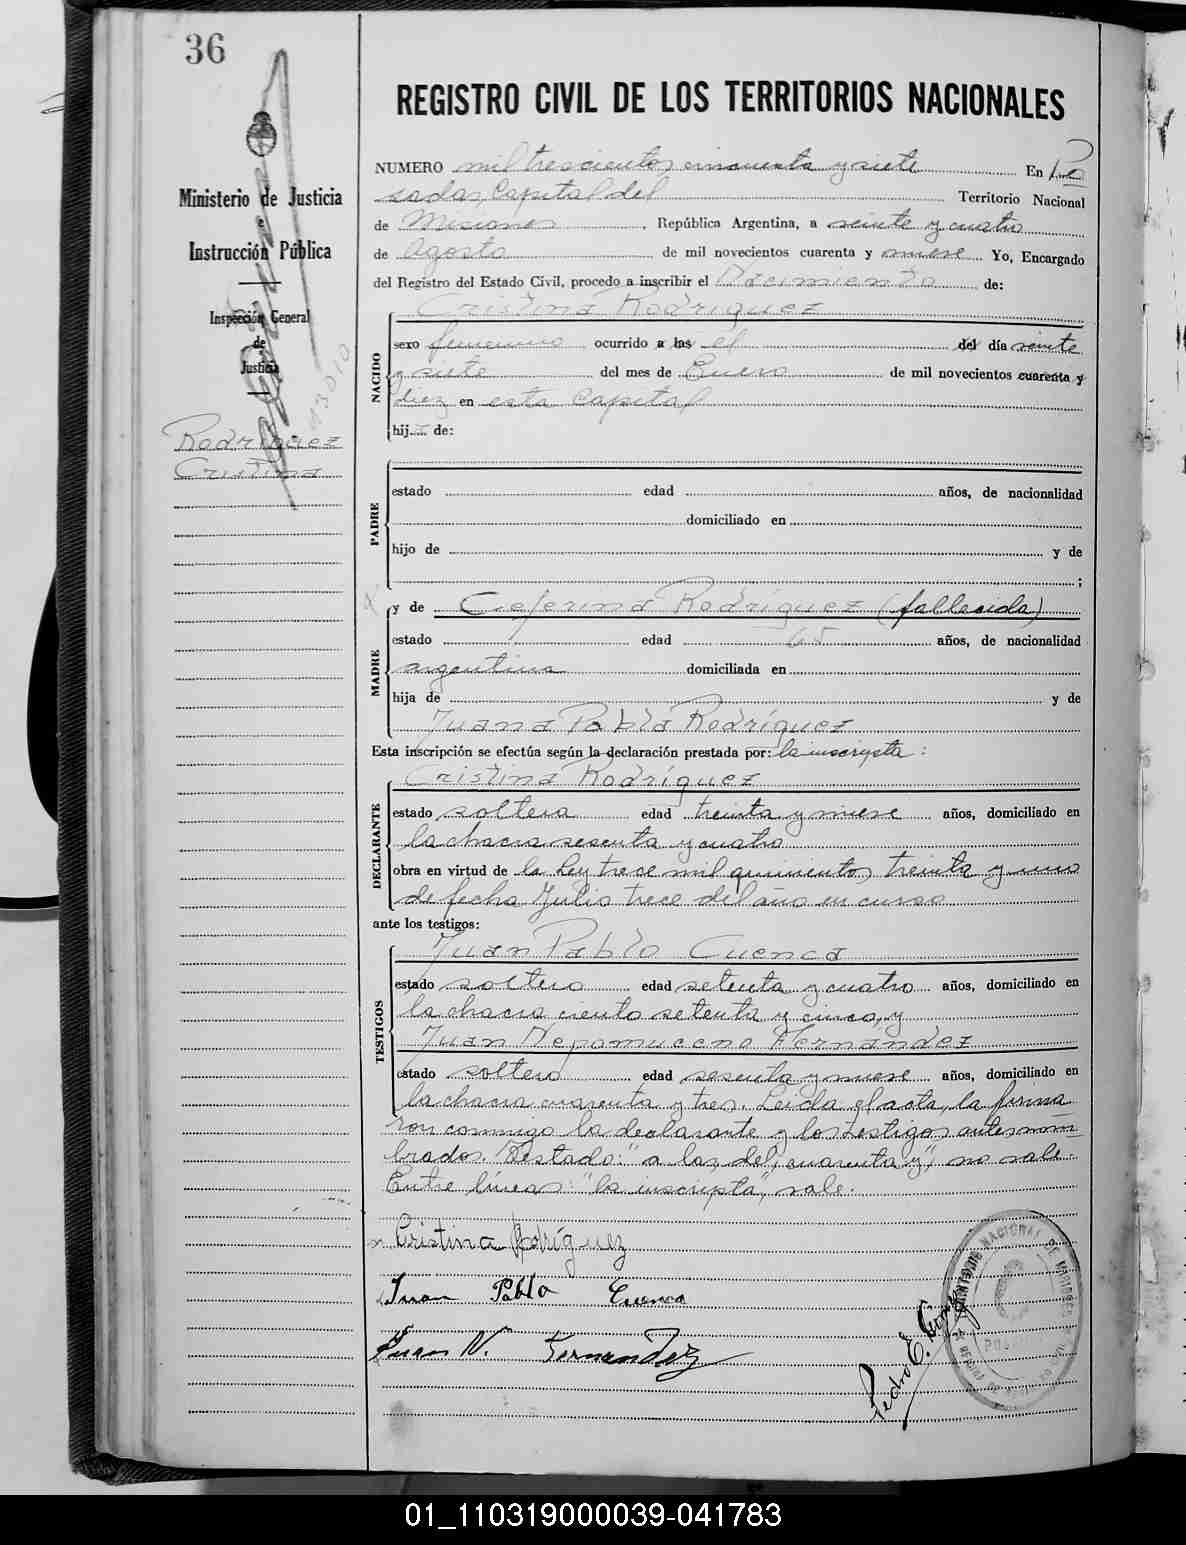 36
REGISTRO CIVIL DE LOS TERRITORIOS NACIONALES
Ministerio de Justicia
e
Instrucción Pública
Inspección General
de
Justicia
Rodríguez
Cristina
NUMERO mil trescientos cincuenta y siete En Po
sadas, Capital del Territorio Nacional
de Misiones, República Argentina, a veinte y cuatro
de agosto de mil novecientos cuarenta y nueve Yo, Encargado
del Registro del Estado Civil, procedo a inscribir el Nacimiento de:
Cristina Rodríguez
NACIDO
sexo femenino ocurrido a las el del día veinte
y siete del mes de Enero de mil novecientos cuarenta y
diez en esta Capital
hij... de:
PADRE
estado edad años, de nacionalidad
domiciliado en
hijo de y de
;
MADRE
y de Ceferina Rodríguez (fallecida)
estado edad 65 años, de nacionalidad
argentina domiciliada en
hija de y de
Juana Pabla Rodríguez
Esta inscripción se efectúa según la declaración prestada por: la inscripta:
Cristina Rodríguez
DECLARANTE
estado soltera edad treinta y nueve años, domiciliado en
la chacra sesenta y cuatro
obra en virtud de la Ley trece mil quinientos treinta y uno
de fecha Julio trece del año en curso
ante los testigos:
Juan Pablo Cuenca
TESTIGOS
estado soltero edad setenta y cuatro años, domiciliado en
la chacra ciento setenta y cinco, y
Juan Nepomuceno Fernandez
estado soltero edad sesenta y nueve años, domiciliado en
la chacra cuarenta y tres. Leida el acta, la firma
ron conmigo la declarante y los testigos antes nom
brados. Testado: "a las del, cuarenta y", no vale.
Entre líneas: "la inscripta", vale.
Cristina Rodríguez
Juan Pablo Cuenca
Juan N. Fernandez
Pedro E.
01_110319000039-041783